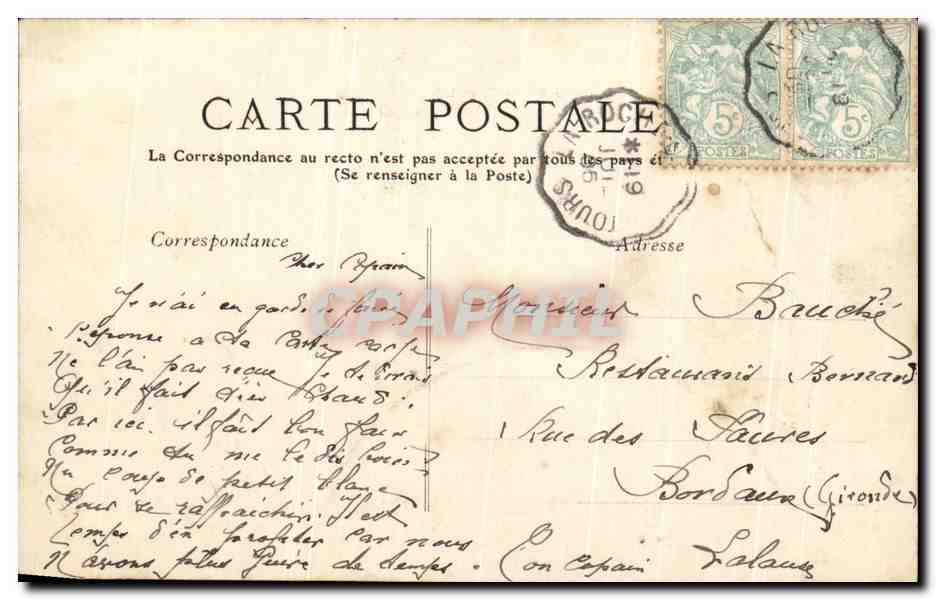 CARTE POSTALE
La Correspondance au recto n'est pas acceptée par tous les pays ét
(Se renseigner à la Poste)
Correspondance
Adresse
TOURS LA ROCH
*
19
JUI
06
5c
POSTES
5c
POSTES
CPAPHIL
Cher Copain
Je n'ai eu garde de faire
réponse a ta Carte car je
Ne l'ai pas recue Je te dirais
Qu'il fait très Chaud
Par ici il fait bon faire
Comme tu me le dis boire
Un coup de petit blanc
Pour se raffraichir Il est
temps d'en profiter car nous
N'avons plus Guère de temps.
Ton Copain Lalause
Monsieur Bauché
Restaurant Bernard
Rue des Faures
Bordeaux (Gironde)